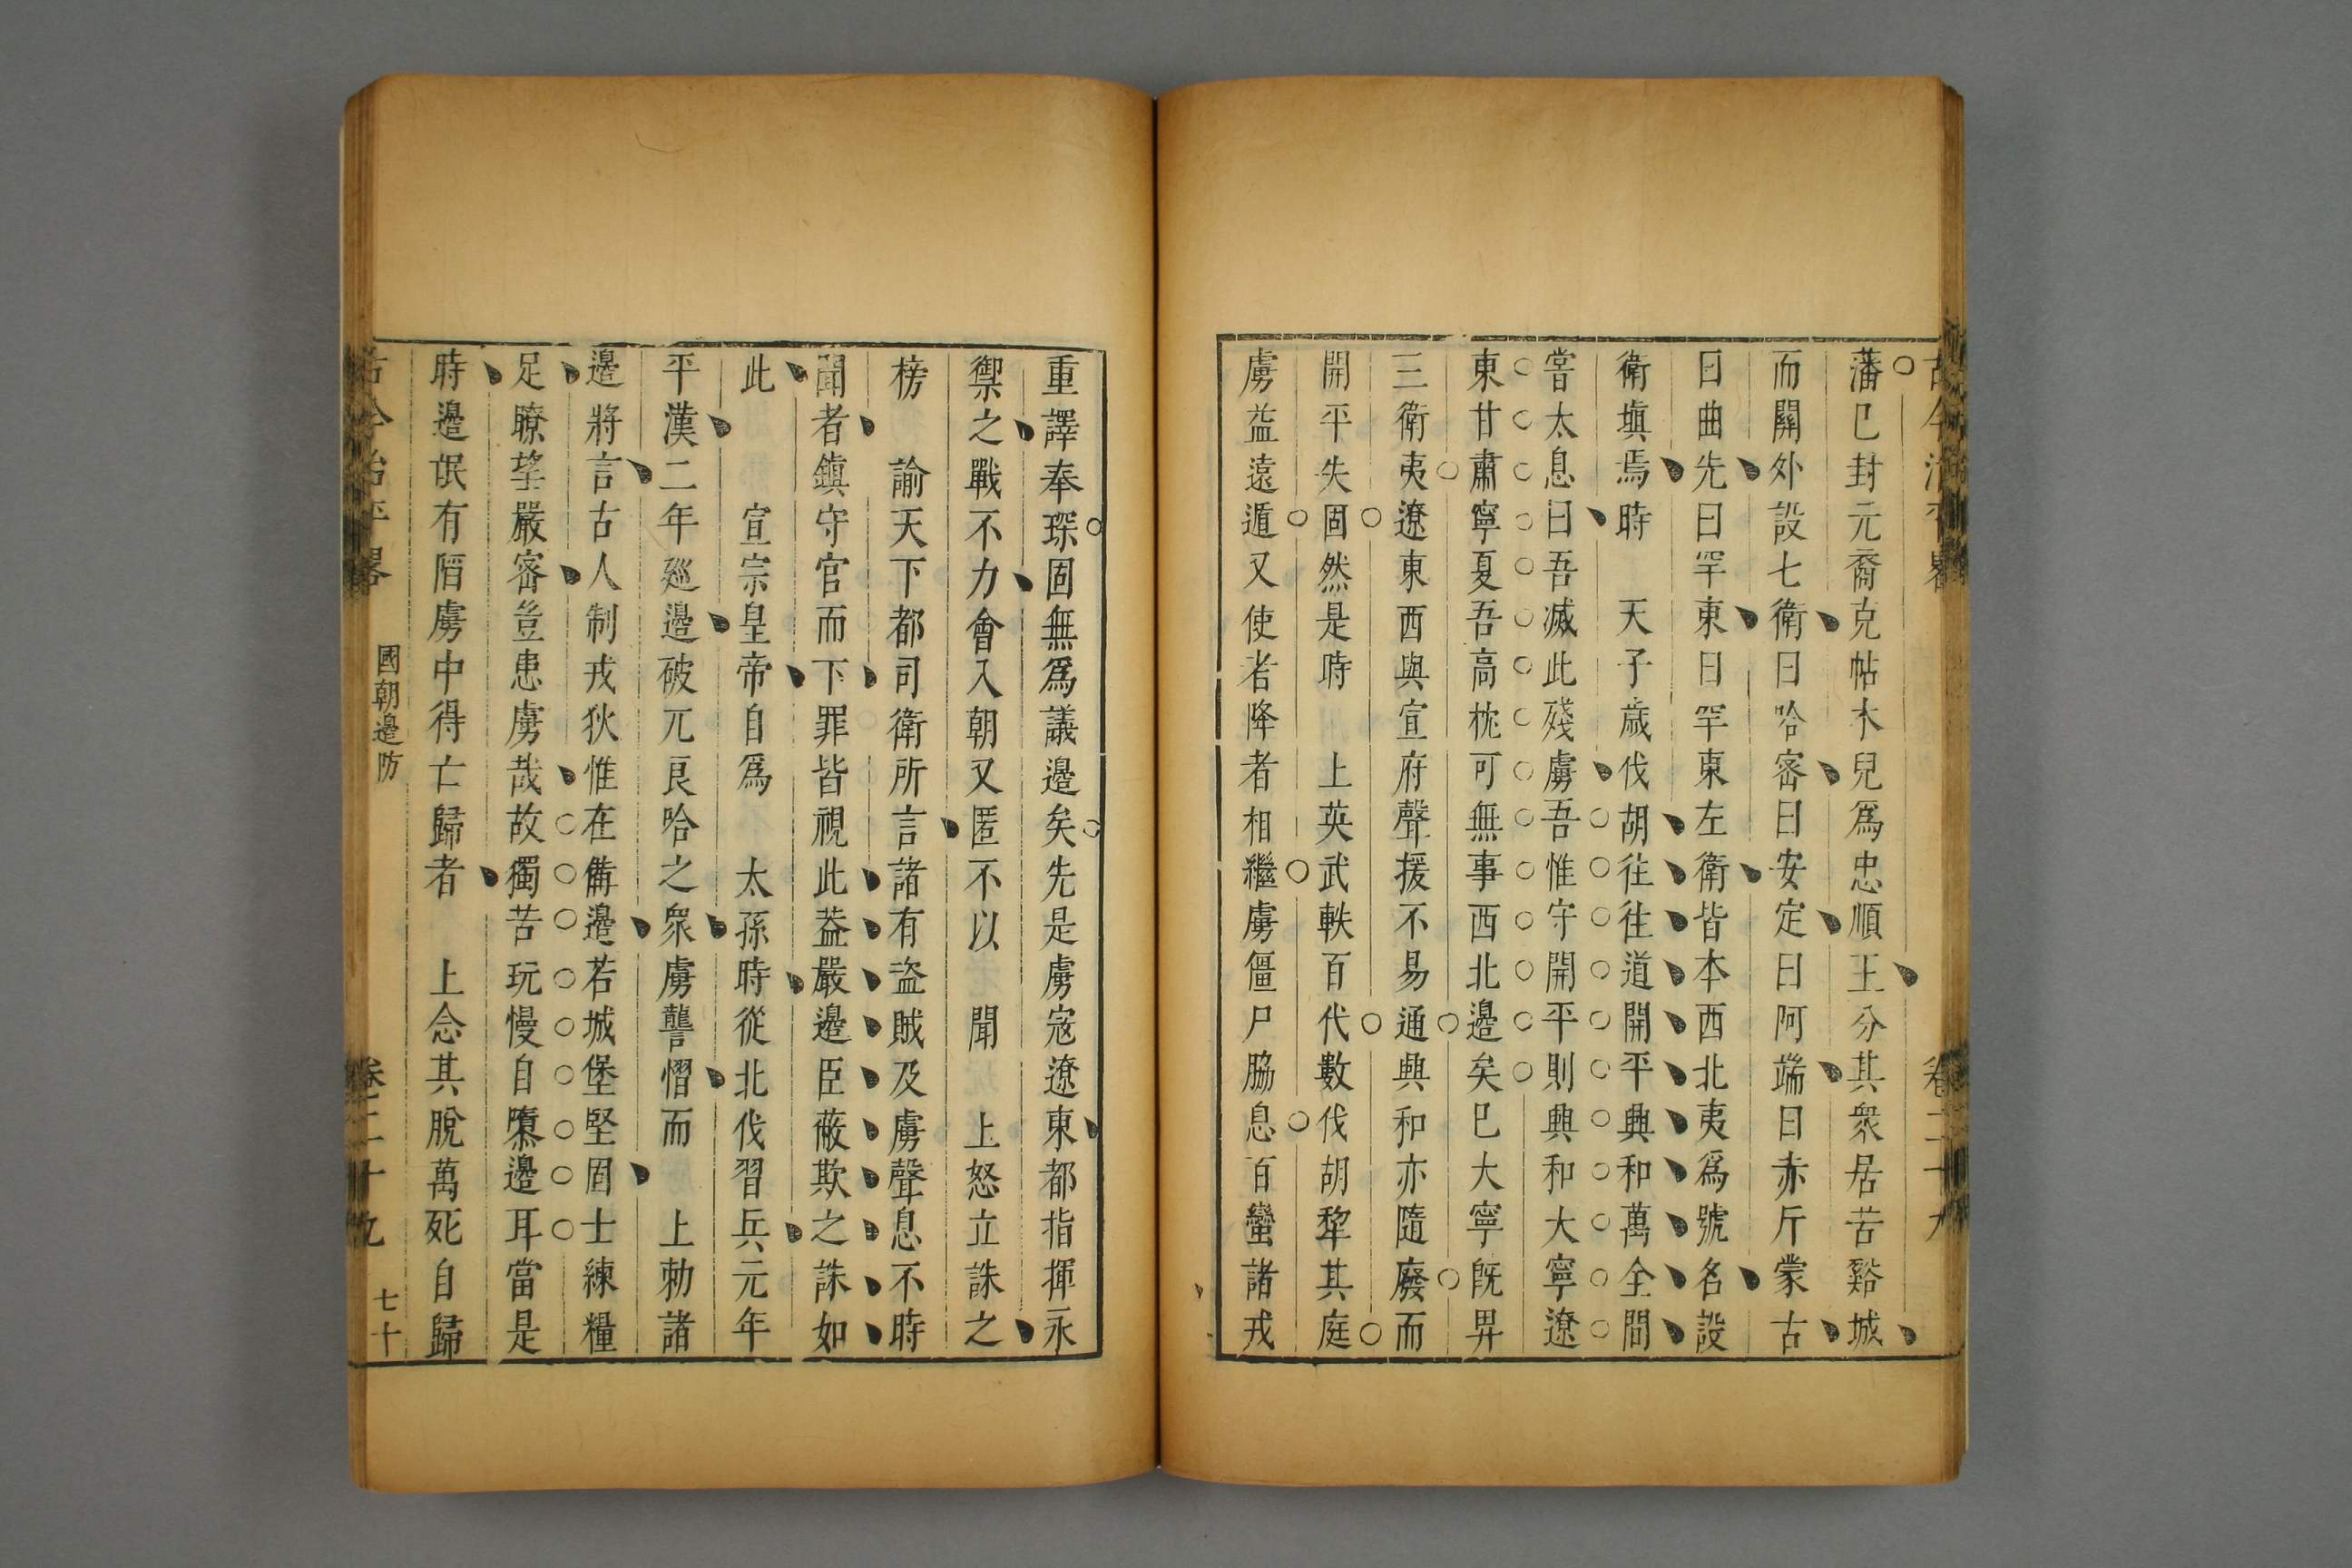 古今治平畧
卷二十九
藩巳封元裔克帖木兒爲忠順王分其衆居苦谿城
而關外設七衛曰哈密曰安定曰阿端曰赤斤蒙古
曰曲先曰罕東曰罕東左衛皆本西北夷爲號名設
衛塡焉時 天子歲伐胡往往道開平興和萬全間
嘗太息曰吾滅此殘虜吾惟守開平則興和大寧遼
東甘肅寧夏吾高枕可無事西北邊矣巳大寧旣畀
三衛夷遼東西與宣府聲援不易通興和亦隨廢而
開平失固然是時 上英武軼百代數伐胡犂其庭
虜益遠遁又使者降者相繼虜僵尸脇息百蠻諸戎
重譯奉琛固無爲議邊矣先是虜寇遼東都指揮永
禦之戰不力會入朝又匿不以 聞 上怒立誅之
榜 諭天下都司衛所言諸有盗賊及虜聲息不時
聞者鎮守官而下罪皆視此葢嚴邊臣蔽欺之誅如
此 宣宗皇帝自爲 太孫時從北伐習兵元年
平漢二年廵邊破兀良哈之衆虜讋慴而 上勅諸
邊將言古人制戎狄惟在備邊若城堡堅固士練糧
足瞭望嚴密豈患虜哉故獨苦玩慢自隳邊耳當是
時邊氓有陷虜中得亡歸者 上念其脫萬死自歸
古今治平畧
國朝邊防
卷二十九
七十